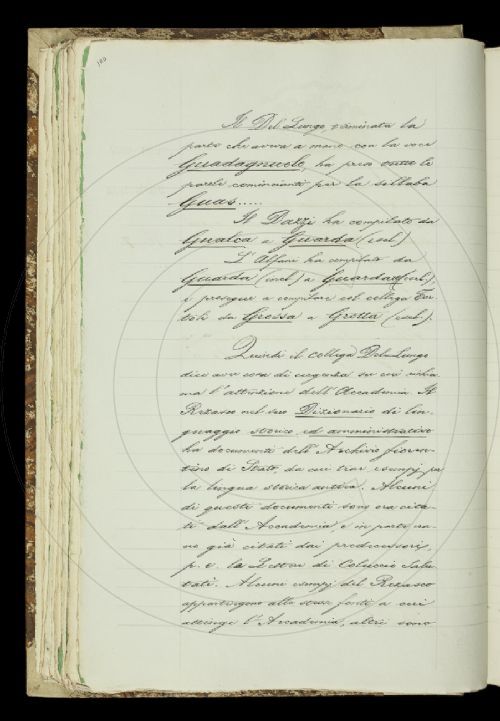 100
Il Del Lungo, terminata la
parte che aveva a mano con la voce
Guadagnuolo, ha preso tutte le
parole comincianti per la sillaba
Guas.....
Il Dazzi ha compilato da
Gualca a Guarda (escl.)
L'Alfani ha compilato da
Guarda (incl.) a (escl.),
e prosegue a compilare col collega
da Gressa a Gretta (escl.).
Quindi il collega Del Lungo
dice aver cosa di urgenza su cui richia
ma l'attenzione dell'Accademia. Il
Rezasco nel suo Dizionario di lin
guaggio storico ed amministrativo
ha documenti dell'Archivio fioren
tino di Stato, da cui trae esempj per
la lingua storica antica. Alcuni
di questi documenti sono ora cita
ti dall'Accademia, e in parte era
no già citati dai predecessori,
p. e. la Lettere di Coluccio Salu
tati. Alcuni esempj del Rezasco
appartengono alle stesse fonti, a cui
attinge l'Accademia, altri sono